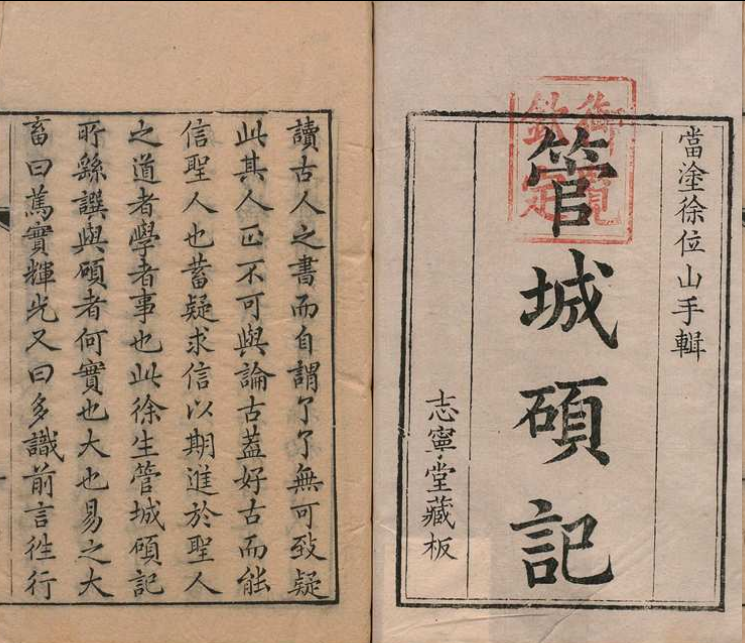 當塗徐位山手輯
御覽
欽定
管城碩記
志寧堂藏板
讀古人之書而自謂了了無可致疑
此其人正不可與論古葢好古而能
信聖人也蓄疑求信以期進於聖人
之道者學者事也此徐生管城碩記
所繇譔與碩者何實也大也易之大
畜曰篤實輝光又曰多識前言徃行